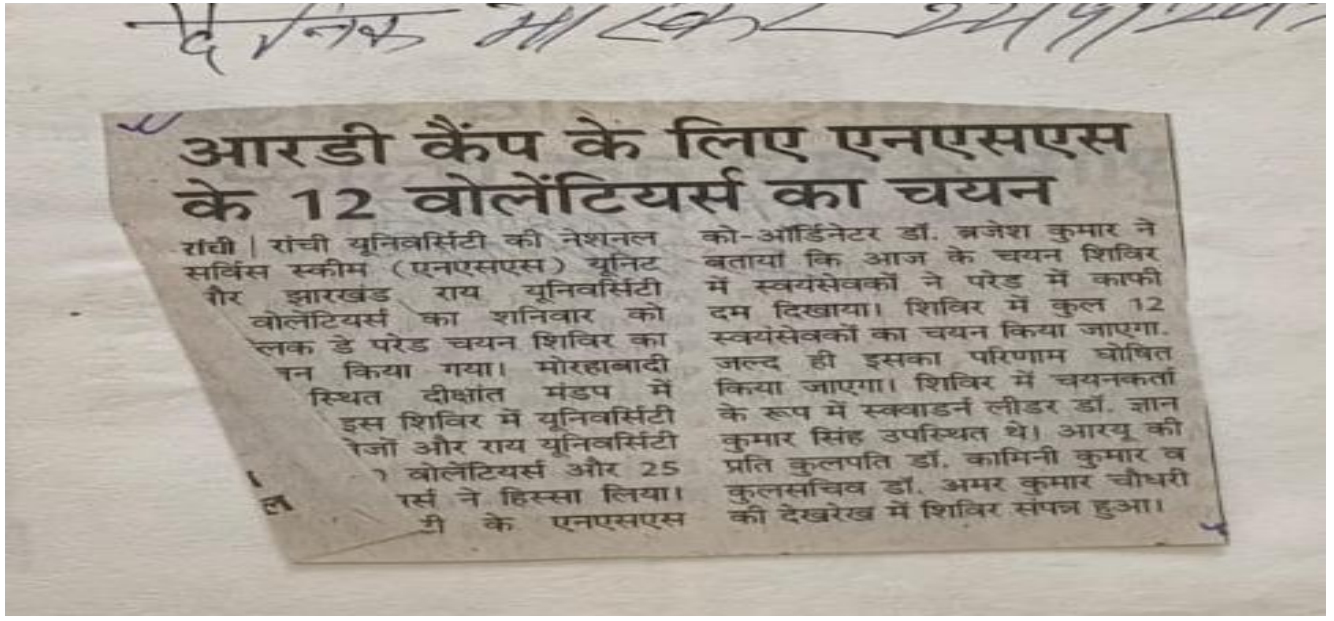 दैनिक भास्कर
आरडी कैंप के लिए एनएसएस
के 12 वोलेंटियर्स का चयन
रांची | रांची यूनिवर्सिटी की नेशनल
सर्विस स्कीम (एनएसएस) यूनिट
गैर झारखंड राय यूनिवर्सिटी
वोलेंटियर्स का शनिवार को
लक डे परेड चयन शिविर का
न किया गया। मोरहाबादी
स्थित दीक्षांत मंडप में
इस शिविर में यूनिवर्सिटी
जों और राय यूनिवर्सिटी
वोलेंटियर्स और 25
र्स ने हिस्सा लिया।
ी के एनएसएस
को-ऑर्डिनेटर डॉ. ब्रजेश कुमार ने
बताया कि आज के चयन शिविर
में स्वयंसेवकों ने परेड में काफी
दम दिखाया। शिविर में कुल 12
स्वयंसेवकों का चयन किया जाएगा.
जल्द ही इसका परिणाम घोषित
किया जाएगा। शिविर में चयनकर्ता
के रूप में स्क्वाडर्न लीडर डॉ. ज्ञान
कुमार सिंह उपस्थित थे। आरयू की
प्रति कुलपति डॉ. कामिनी कुमार व
कुलसचिव डॉ. अमर कुमार चौधरी
की देखरेख में शिविर संपन्न हुआ।